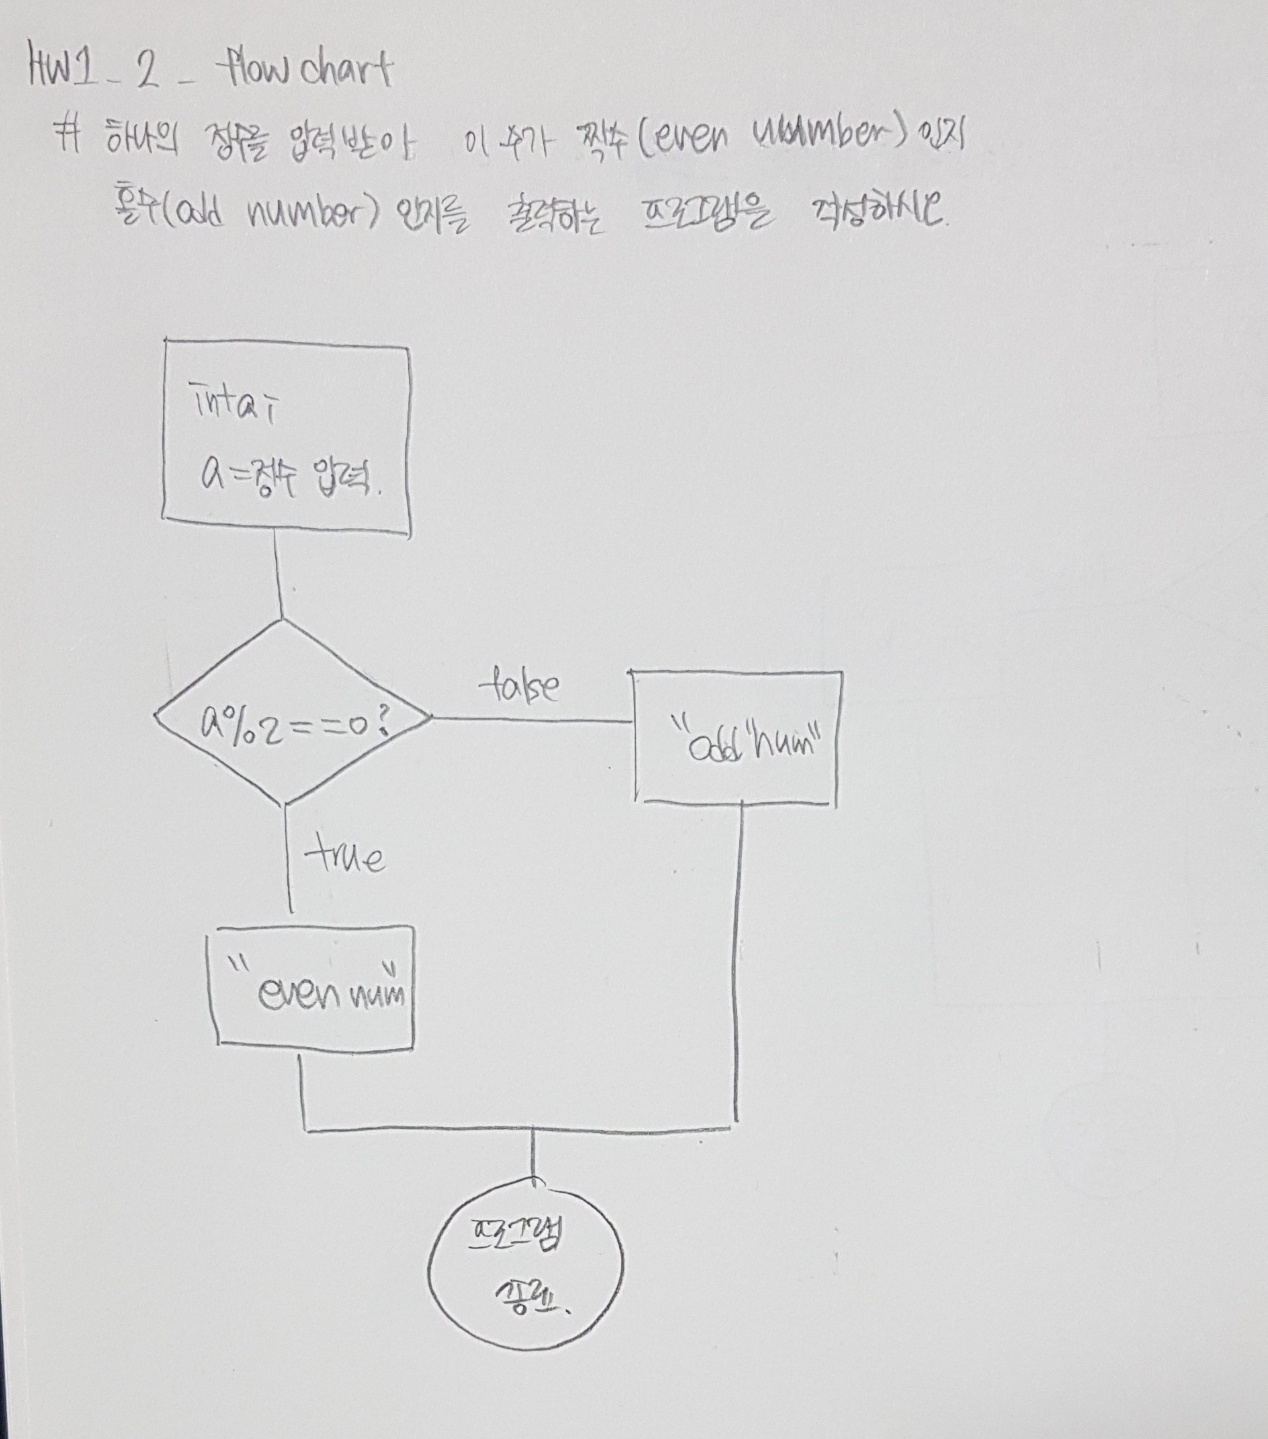 HW1_2_ flow chart
# 하나의 정수를 입력받아 이 수가 짝수(even number)인지
홀수(odd number)인지를 출력하는 프로그램을 작성하시오.
int a;
a=정수 입력.
a%2==0?
false
"odd num"
true
"even num"
프로그램
종료.